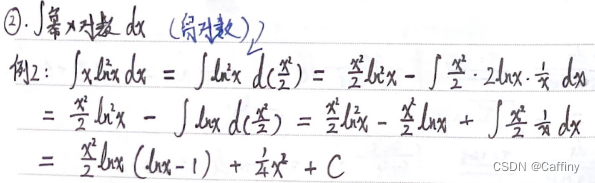 ②. ∫幂×对数 dx (留对数)
例2: ∫x ln²x dx = ∫ln²x d(x²/2) = x²/2 ln²x - ∫ x²/2 · 2lnx · 1/x dx
= x²/2 ln²x - ∫lnx d(x²/2) = x²/2 ln²x - x²/2 lnx + ∫ x²/2 1/x dx
= x²/2 lnx (lnx-1) + 1/4 x² + C
CSDN @Caffiny